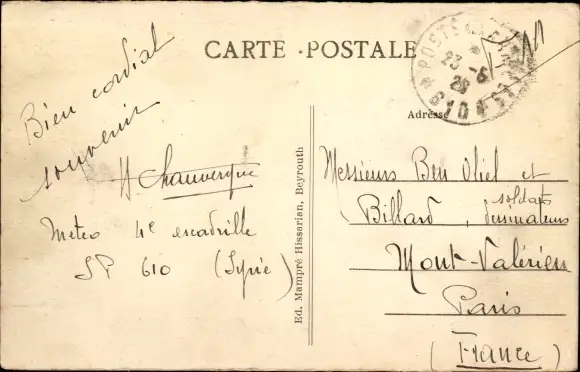 CARTE - POSTALE
POSTE
23-6
28
610
Bien cordial
souvenir
H Chauvergne
Météo 4e escadrille
SP 610 (Syrie)
Ed. Mampré Hissarian, Beyrouth
Adresse
Messieurs Ben Oliel et
soldats
Billard, dessinateurs
Mont-Valérien
Paris
(France)